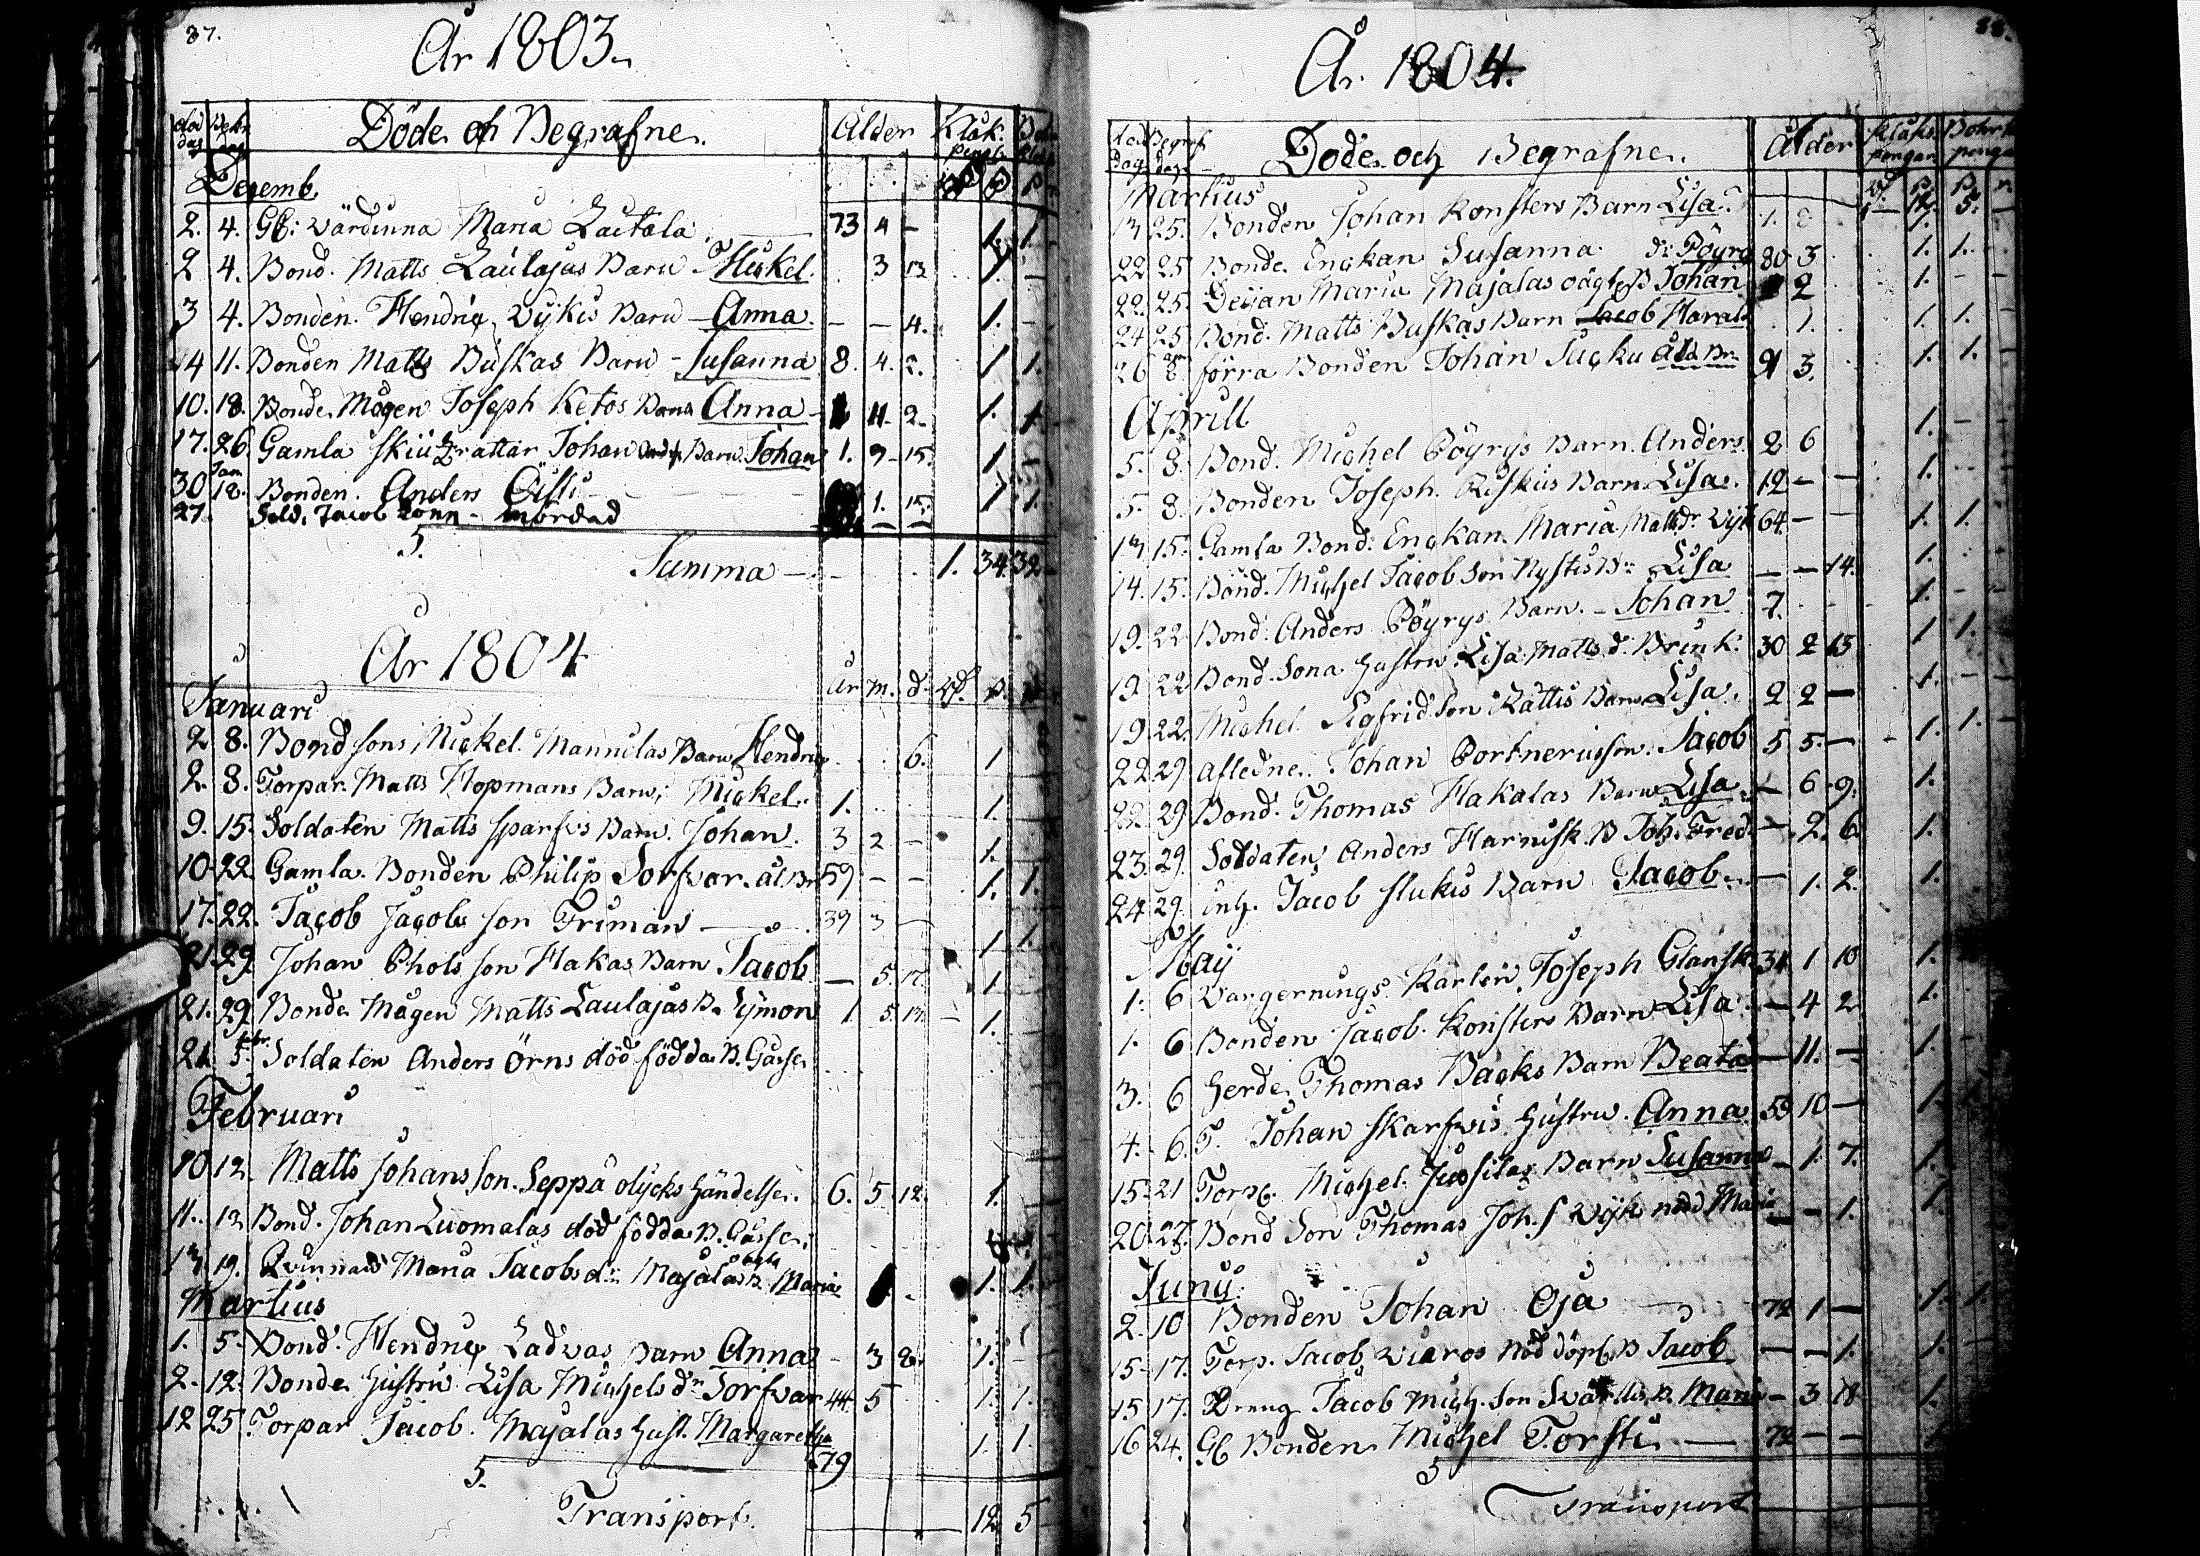 37.
År 1803.
död dag
Döde och Begrafne.
Ålder
Klåk. 
Decemb.
2. 4. Gl: Värdinna Maria Laitala 73 4 – 1. 1.
2 4. Bond. Matts Laulajas Barn Mickel. 3 13 1. –
3 4. Bonden Hendric Wykis Barn – Anna. – – 4. 1. –
4 11. Bonden Matts Buskas Barn – Susanna 8. 4. 2. 1 1.
10. 18. Bonde Mågen Joseph Ketos Barn Anna – 11. 2. 1. 1.
17. 26. Gamla Skiutzrättar Johan Barn Johan 1. 9 – 15. 1 –
30 Jan 18. Bonden Anders 1. 15. 1. 1.
27 Sold. Jacob Lönn – mördad – –
5.
Summa – 1. 34 32
År 1804
Januari År m. d. p.
2 8. Bondsons Mickel Mannilas Barn Hendric 6. 1
2. 8. Torpar. Matts Hopmans Barn, Mickel. 1. 1.
9. 15. Soldaten Matts Sparfvs Barn. Johan. 3 2 – 1.
10. 22. Gamla Bonden Philip Sorfvar. ål. Br 59 – – 1. 1.
17. 22. Jacob Jacobs son Friman – 39 3 – 1 1.
21. 29. Johan Phols son Hakas Barn Jacob. – 5. 17. 1
21. 29. Bonde Mågen Matts Laulajas B. Symon 1. 5. 17. – 1.
21. Febr. 5. Soldaten Anders Örns död födda B. Gåsse
Februari
10 12. Matts Johansson Seppä olycks händelse. 6. 5. 12. 1.
11. 12 Bond. Johan Luomalas död födda B. Gåsse.
13. 19. Qvinnans Maria Jacobs dr Majalas oägta B. Maria 1. 1.
Martius
1. 5. Bond. Hendric Ladvas Barn Anna – 3 2. 1. –
2. 12. Bonde Hustru Lisa Michels dr Sorfvar 44. 5 1. 1.
12 25 Torpar Jacob Majalas Hust. Margaretha 79 1. 1.
5.
Transport. 12 5
År 1804.
död Dag Begraf dag
Döde och Begrafne.
Ålder
Klåk. pengar
Martius
13 25. Bonden Johan Konsters Barn Lisa. 1.
22. 25 Bonde Enckan Susanna dr Pöyry 80 3 1. 1.
22. 25. Deijan Maria Majalas oägta B Johan 2 1. –
24 25 Bond. Matts Buskas Barn Jacob 1. 1. 1.
26 förra Bonden Johan Sucku åld Br 91 3. 1. 1.
Aprill
5. 8. Bond. Michel Pöyrys Barn. Anders. 2 6 1. –
5. 8. Bonden Joseph Riskus Barn Lisa. 12 – – 1.
13 15. Gamla Bond: Enckan Maria Mattsdr Wyk 64 – – 1. 1.
14. 15. Bond. Michel Jacob son Nystis Br. Lisa – – 14. 1.
19. 22 Bond. Anders Pöyrys Barn. – Johan 7. 1. –
19. 22 Bond. Sona Hustru Lisa Matts d. Brink. 30 2 13 1 1.
19. 22. Michel Sigfridson Kättis Barn Lisa. 2 2 – 1. –
22 29 afledne Johan Portnerus son Jacob 5 5. – 1. 1.
22. 29 Bond. Thomas Hakalas Barn Lisa – 6 9. 1.
23. 29. Soldaten Anders Harnisk. B Joh. Fred. – 2. 6. 1.
24. 29. Inh. Jacob Slukis Barn Jacob – 1. 2. 1.
May
1. 6 Vargernings Karlen Joseph Glansk 34 1 10 1.
1. 6 Bonden Jacob Konsters Barn Lisa – 4 2 1.
3. 6 Herde Thomas Bäcks Barn Beata – 11. – 1.
4. 6. T. Johan Skarfvis Hustru Anna. 59 10 – 1.
15. 21 Torp. Michel Jussilas Barn Susanna – 1. 7. 1.
20. 27. Bond Son Thomas Joh. s Wyk nöd Maria – – 1. 1.
Juny
2. 10 Bonden Johan Oja 72 1 – 1. 1.
15. 17. Torp. Jacob Wiaros nöd döpt B Jacob – – 1. 1.
15 17. Dreng Jacob Mich. Son B. Maria – 3 18 1.
16 24. Gl Bonden Michel Torsti. – 72 – –
5
Transport